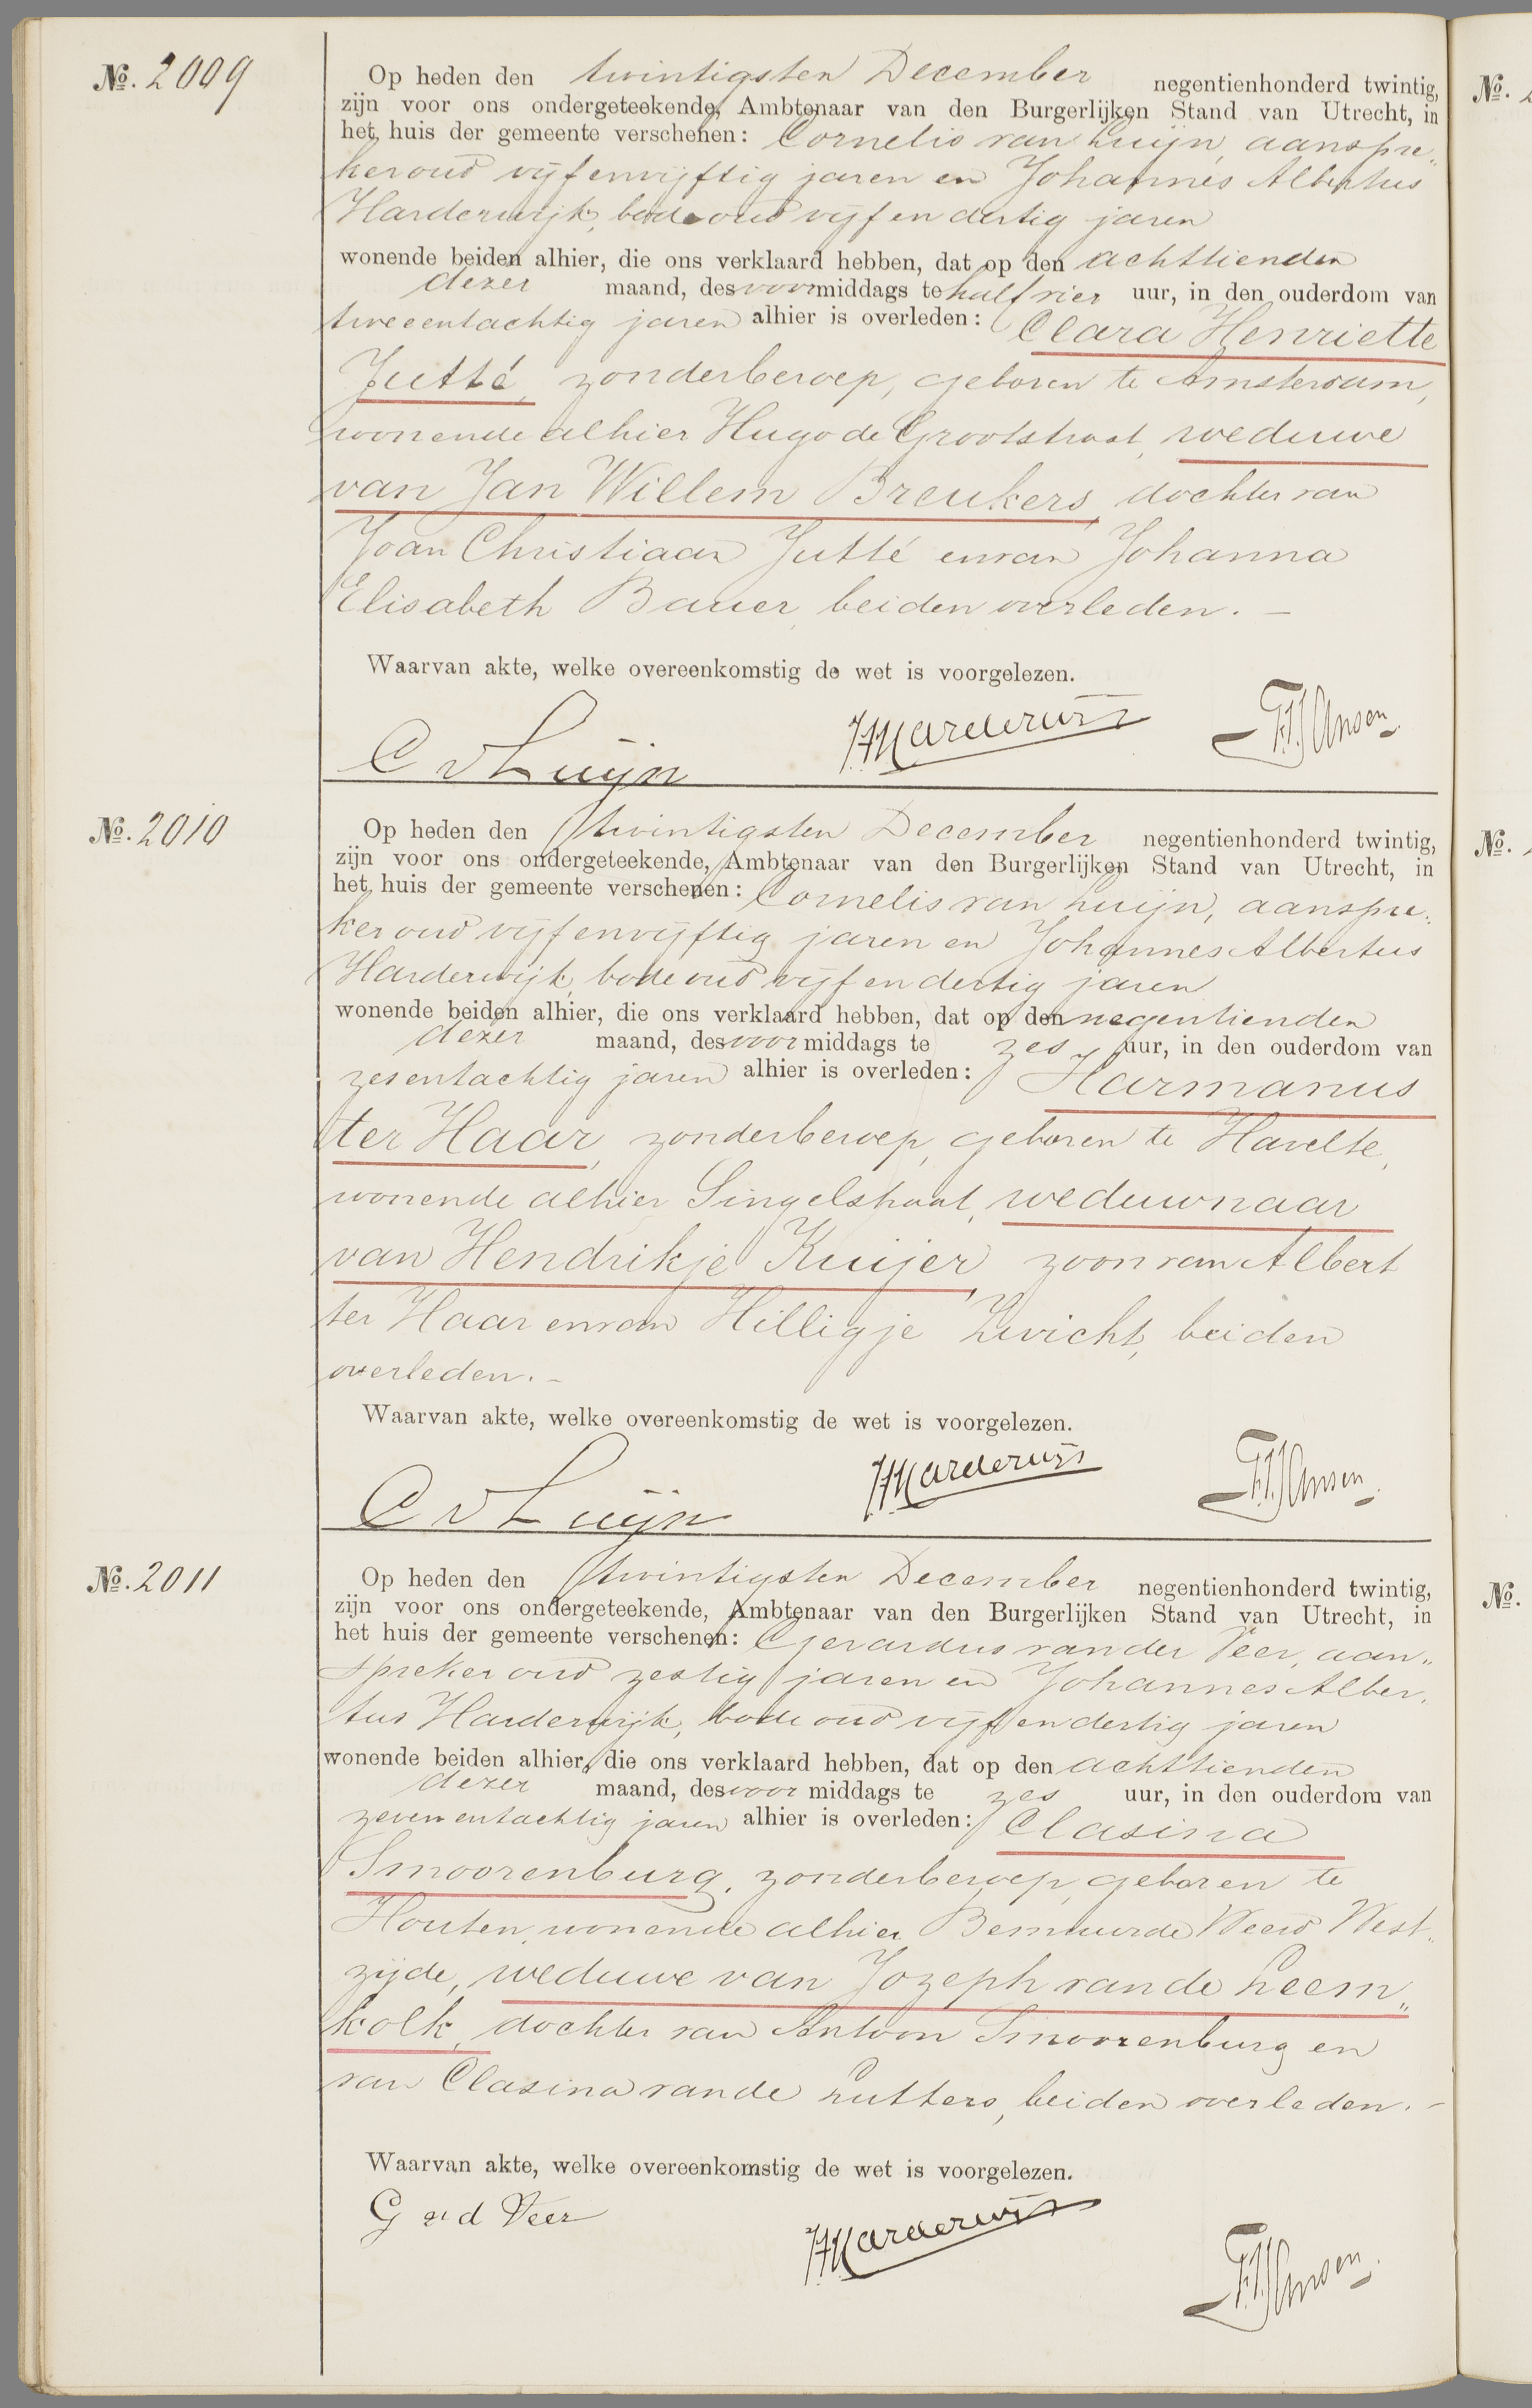 No. 2009
Op heden den twintigsten December negentienhonderd twintig,
zijn voor ons ondergeteekende, Ambtenaar van den Burgerlijken Stand van Utrecht, in
het huis der gemeente verschenen: Cornelis van Luijn, aanspre„
ker oud vijfenvijftig jaren en Johannes Albertus
Harderwijk, bode oud vijfendertig jaren
wonende beiden alhier, die ons verklaard hebben, dat op den achttienden
dezer maand, des voormiddags te half vier uur, in den ouderdom van
tweeentachtig jaren alhier is overleden: Clara Henriette
Jutté, zonder beroep, geboren te Amsterdam,
wonende alhier Hugo de Grootstraat, weduwe
van Jan Willem Breukers, dochter van
Joan Christiaan Jutté en van Johanna
Elisabeth Bauer, beiden overleden. –
Waarvan akte, welke overeenkomstig de wet is voorgelezen.
C v Luijn JAHarderwijk
No. 2010
Op heden den twintigsten December negentienhonderd twintig,
zijn voor ons ondergeteekende, Ambtenaar van den Burgerlijken Stand van Utrecht, in
het huis der gemeente verschenen: Cornelis van Luijn, aanspre„
ker oud vijfenvijftig jaren en Johannes Albertus
Harderwijk, bode oud vijfendertig jaren
wonende beiden alhier, die ons verklaard hebben, dat op den negentienden
dezer maand, des voormiddags te zes uur, in den ouderdom van
zesentachtig jaren alhier is overleden: Harmanus
ter Haar, zonder beroep, geboren te Havelte,
wonende alhier Singelstraat, weduwnaar
van Hendrikje Kuijer, zoon van Albert
ter Haar en van Hilligje Zwicht, beiden
overleden. –
Waarvan akte, welke overeenkomstig de wet is voorgelezen.
C v Luijn JAHarderwijk
No. 2011
Op heden den twintigsten December negentienhonderd twintig,
zijn voor ons ondergeteekende, Ambtenaar van den Burgerlijken Stand van Utrecht, in
het huis der gemeente verschenen: Gerardus van der Veer, aan„
spreker oud zestig jaren en Johannes Alber„
tus Harderwijk, bode oud vijfendertig jaren
wonende beiden alhier, die ons verklaard hebben, dat op den achttienden
dezer maand, des voormiddags te zes uur, in den ouderdom van
zevenentachtig jaren alhier is overleden: Clasina
Smoorenburg, zonder beroep, geboren te
Houten, wonende alhier Bemuurde Weerd West„
zijde, weduwe van Jozeph van de Leem„
kolk, dochter van Antoon Smoorenburg en
van Clasina van de Lutters, beiden overleden. –
Waarvan akte, welke overeenkomstig de wet is voorgelezen.
G v d Veer JAHarderwijk
No.
No.
No.